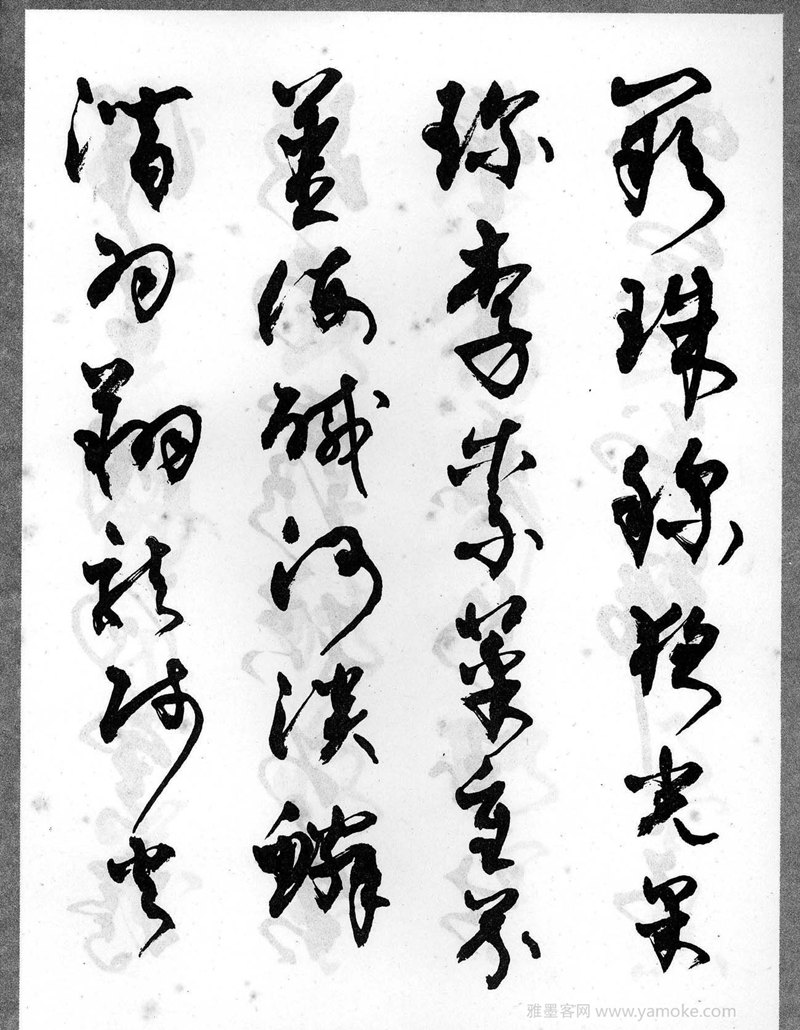 阙珠称夜光果
珍李柰菜重芥
姜海咸河淡鳞
潜羽翔龙师火
雅墨客网 www.yamoke.com